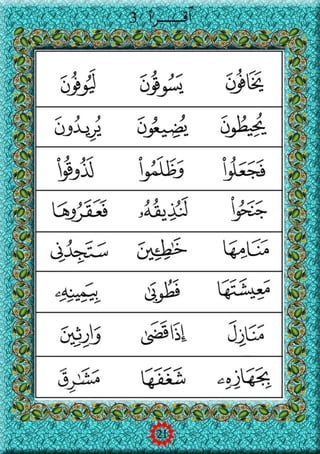 أقـــرأ 3
يَخَافُونَ يَسُوقُونَ لَيُوفُونَ
يُحِيطُونَ يُضِيعُونَ يُرِيدُونَ
فَجَعَلُوا۟ وَظَلَمُوا۟ لَذُوقُوا۟
جَنَحُوا۟ لَنُذِيقُهُۥ فَعَقَرُوهَا
مَنَامِهَا خَطِـِٔينَ سَتَجِدُنِى
مَعِيشَتَهَا طُوبَىٰ بِيَمِينِهِۦ
مَنَازِلَ إِذَا قَضَىٰ وَٰرِثِينَ
بِجَهَازِهِۦ شَغَفَهَا مَشَـٰرِقَ
21